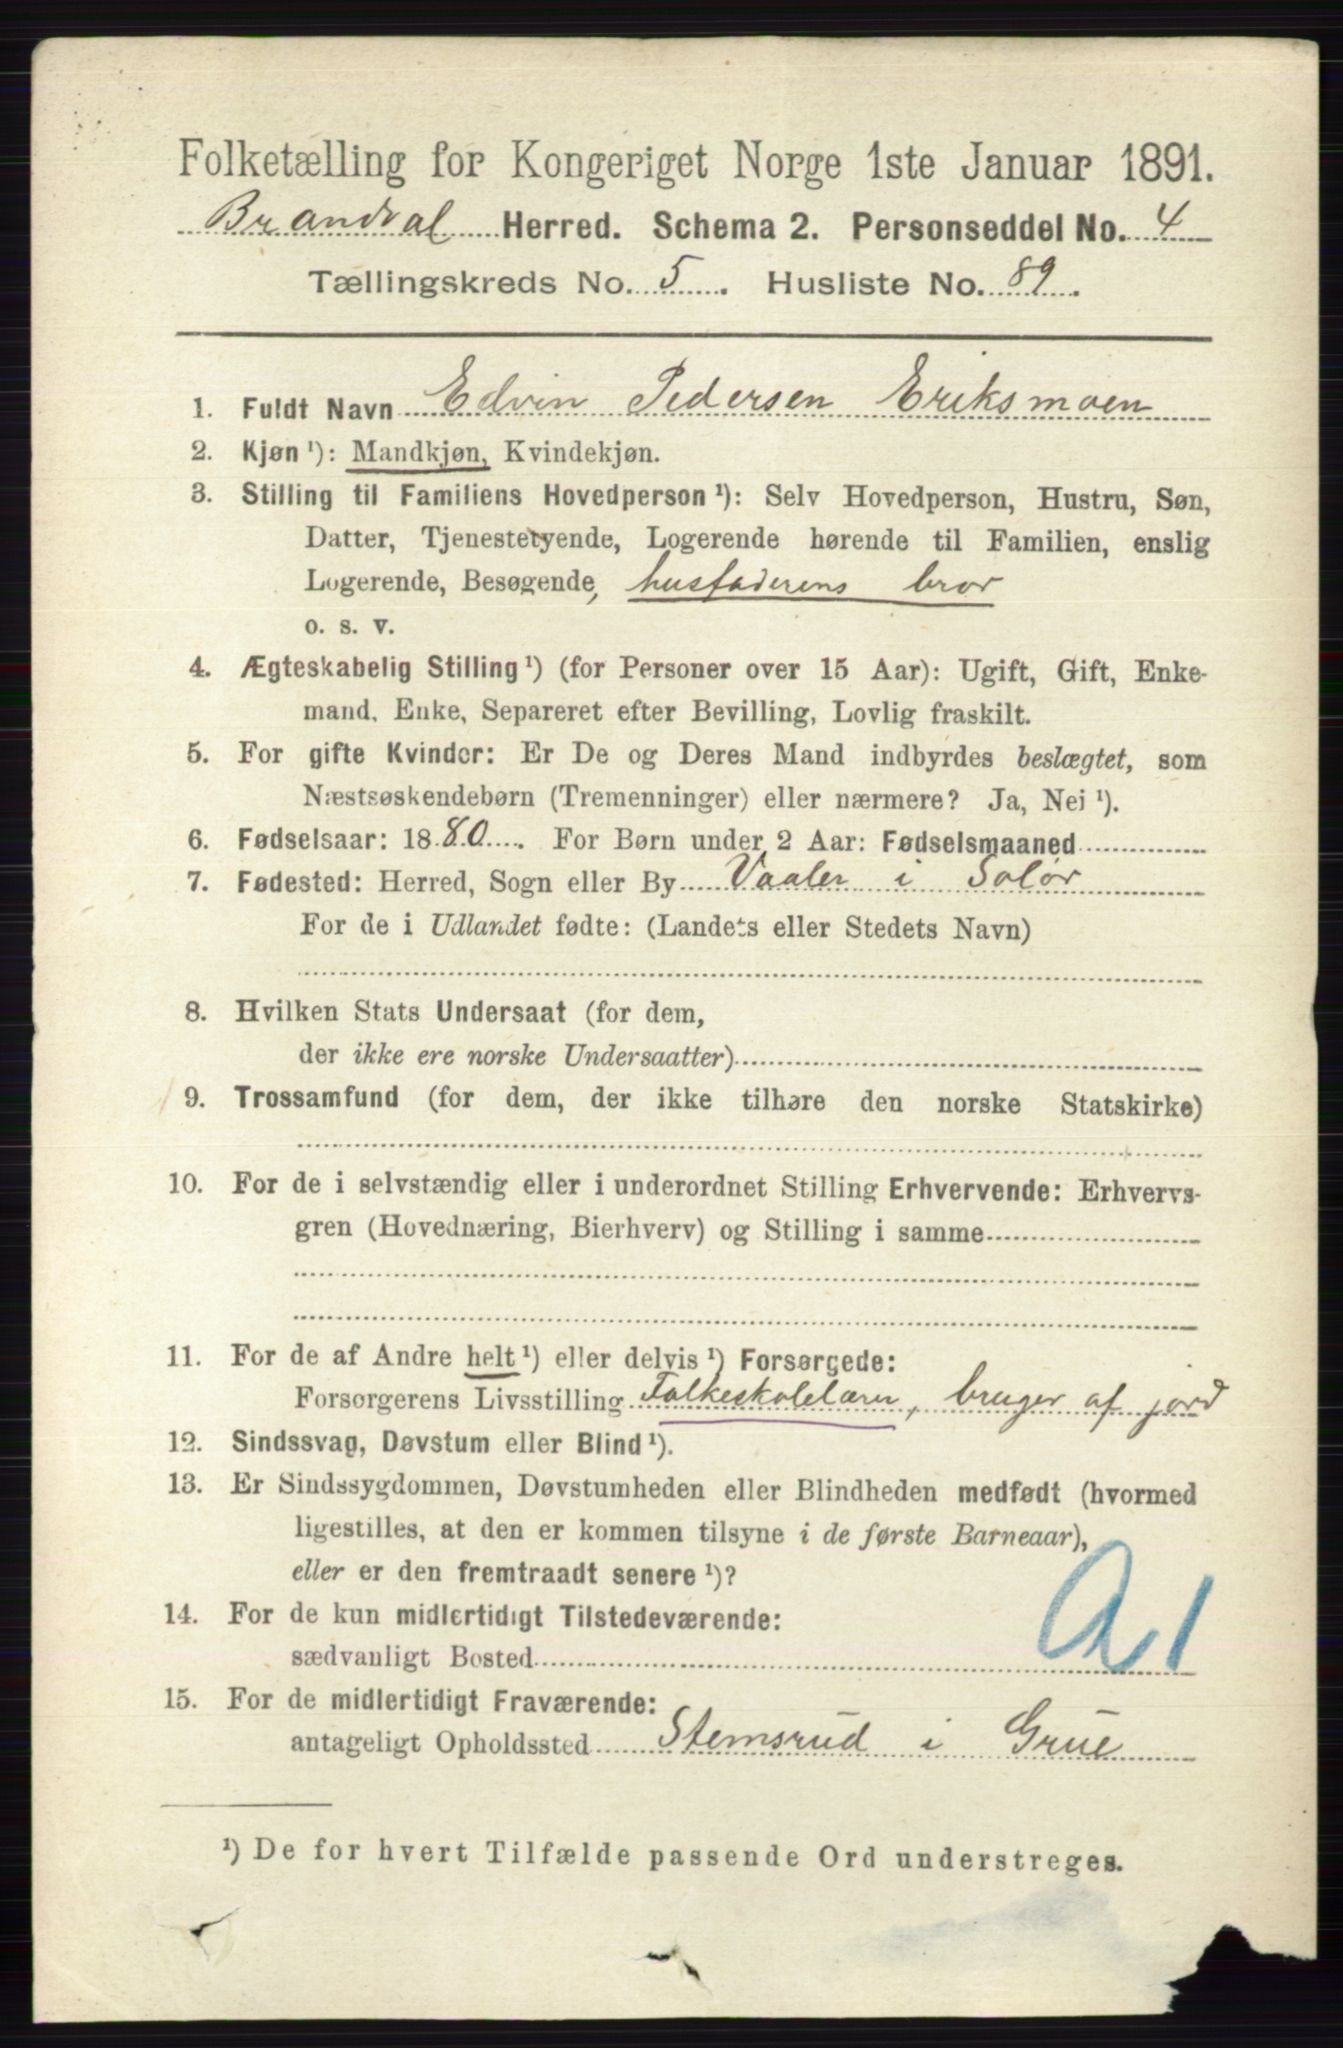 Folketælling for Kongeriget Norge 1ste Januar 1891.
Brandval Herred. Schema 2. Personseddel No. 4
Tællingskreds No. 5. Husliste No. 89.
1. Fuldt Navn Edvin Pedersen Eriksmoen
2. Kjøn ¹): Mandkjøn, Kvindekjøn.
3. Stilling til Familiens Hovedperson ¹): Selv Hovedperson, Hustru, Søn,
Datter, Tjenestetyende, Logerende hørende til Familien, enslig
Logerende, Besøgende, husfaderens bror
o. s. v.
4. Ægteskabelig Stilling ¹) (for Personer over 15 Aar): Ugift, Gift, Enke-
mand, Enke, Separeret efter Bevilling, Lovlig fraskilt.
5. For gifte Kvinder: Er De og Deres Mand indbyrdes beslægtet, som
Næstsøskendebørn (Tremenninger) eller nærmere? Ja, Nei ¹).
6. Fødselsaar: 1880. For Børn under 2 Aar: Fødselsmaaned
7. Fødested: Herred, Sogn eller By Vaaler i Solør
For de i Udlandet fødte: (Landets eller Stedets Navn)
8. Hvilken Stats Undersaat (for dem,
der ikke ere norske Undersaatter)
9. Trossamfund (for dem, der ikke tilhøre den norske Statskirke)
10. For de i selvstændig eller i underordnet Stilling Erhvervende: Erhvervs-
gren (Hovednæring, Bierhverv) og Stilling i samme
11. For de af Andre helt ¹) eller delvis ¹) Forsørgede:
Forsørgerens Livsstilling Folkeskolelærer, bruger af jord
12. Sindssvag, Døvstum eller Blind ¹).
13. Er Sindssygdommen, Døvstumheden eller Blindheden medfødt (hvormed
ligestilles, at den er kommen tilsyne i de første Barneaar),
eller er den fremtraadt senere ¹)?
14. For de kun midlertidigt Tilstedeværende:
sædvanligt Bosted
15. For de midlertidigt Fraværende:
antageligt Opholdssted Stemsrud i Grue
¹) De for hvert Tilfælde passende Ord understreges.